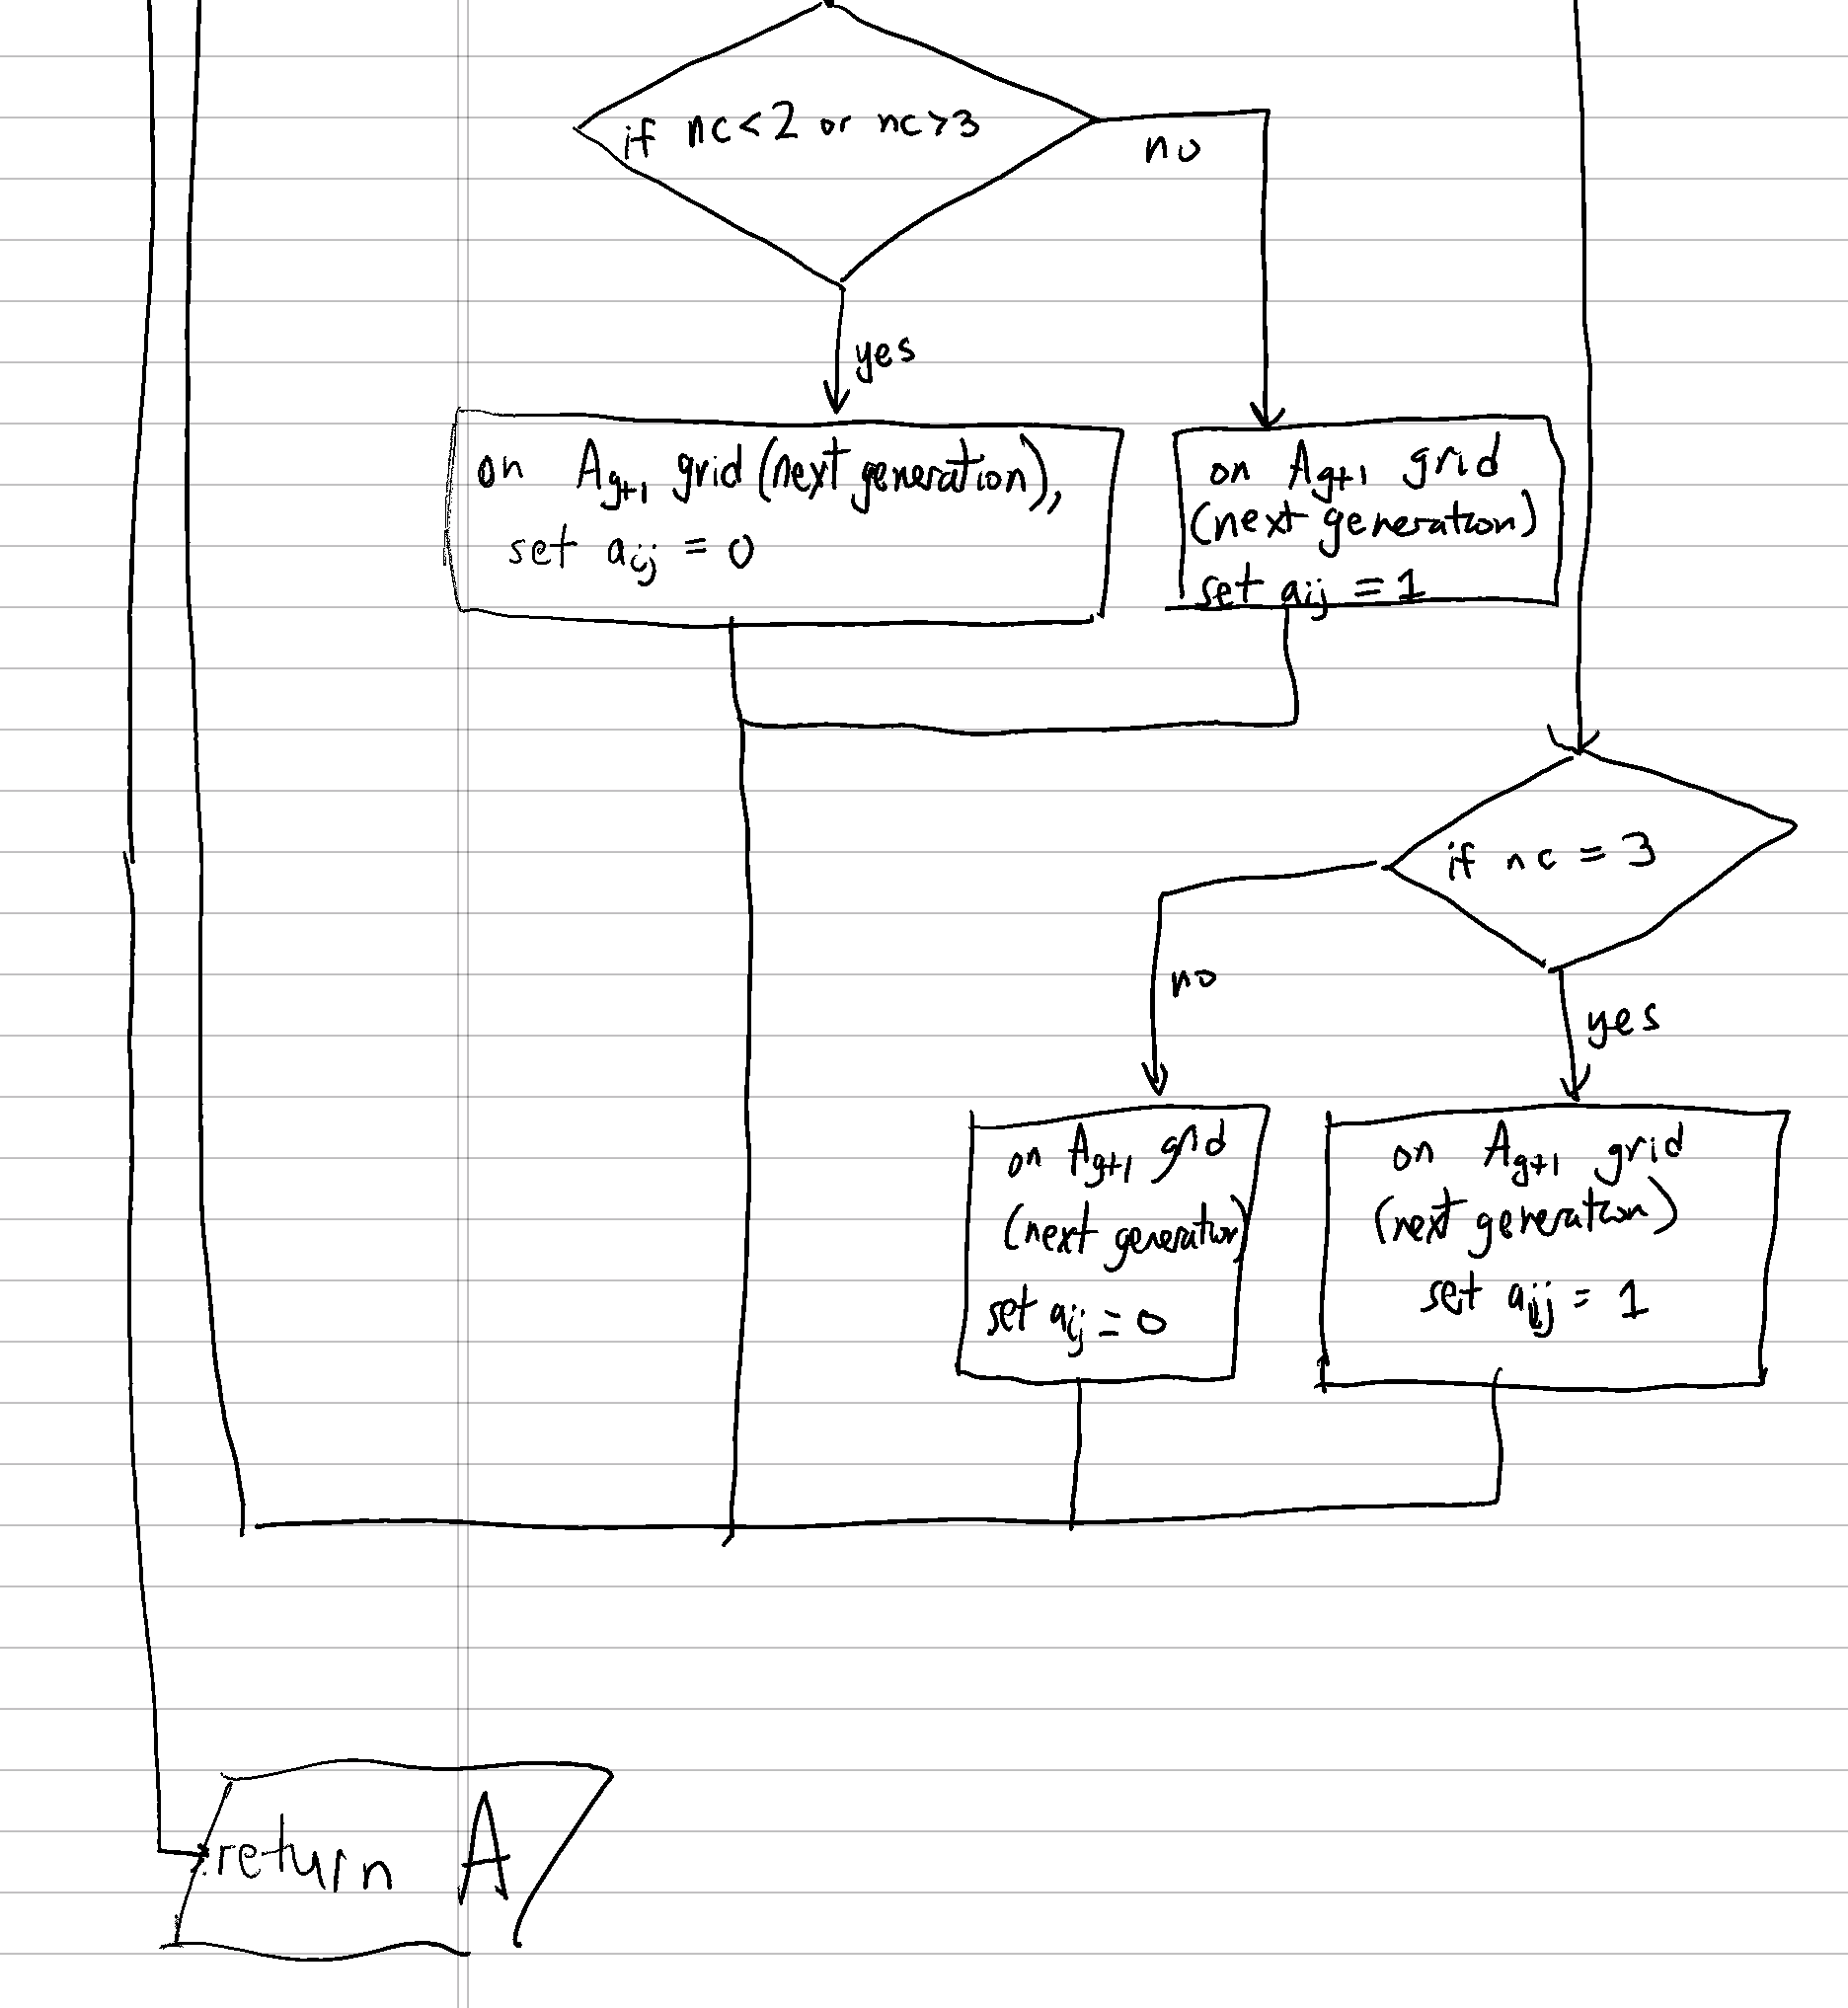 if nc<2 or nc>3
no
yes
on A_{g+1} grid (next generation),
set a_{ij} = 0
on A_{g+1} grid
(next generation)
set a_{ij} = 1
if nc = 3
no
yes
on A_{g+1} grid
(next generation)
set a_{ij} = 0
on A_{g+1} grid
(next generation)
set a_{ij} = 1
return A